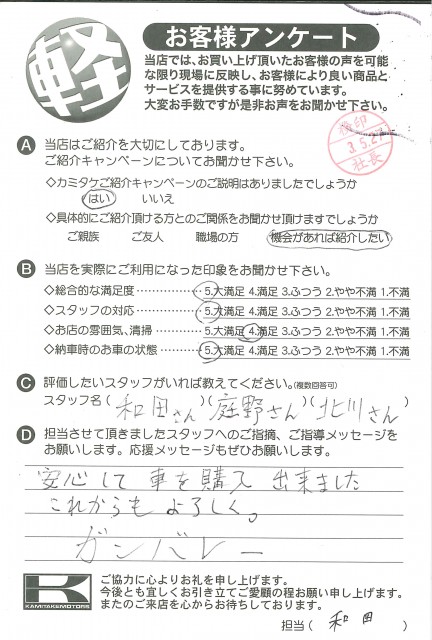 軽
お客様アンケート
当店では、お買い上げ頂いたお客様の声を可能
な限り現場に反映し、お客様により良い商品と
サービスを提供する事に努めています。
大変お手数ですが是非お声をお聞かせ下さい。
検印
3.5.2
社長
A 当店はご紹介を大切にしております。
ご紹介キャンペーンについてお聞かせ下さい。
◇カミタケご紹介キャンペーンのご説明はありましたでしょうか
はい いいえ
◇具体的にご紹介頂ける方とのご関係をお聞かせ頂けますでしょうか
ご親族 ご友人 職場の方 機会があれば紹介したい
B 当店を実際にご利用になった印象をお聞かせ下さい。
◇総合的な満足度 5.大満足 4.満足 3.ふつう 2.やや不満 1.不満
◇スタッフの対応 5.大満足 4.満足 3.ふつう 2.やや不満 1.不満
◇お店の雰囲気、清掃 5.大満足 4.満足 3.ふつう 2.やや不満 1.不満
◇納車時のお車の状態 5.大満足 4.満足 3.ふつう 2.やや不満 1.不満
C 評価したいスタッフがいれば教えてください。(複数回答可)
スタッフ名(和田さん)(庭野さん)(北川さん)
D 担当させて頂きましたスタッフへのご指摘、ご指導メッセージを
お願いします。応援メッセージもぜひお願いします。
安心して 車を購入 出来ました
これからも よろしく。
ガンバレー
K
KAMITAKEMOTORS
ご協力に心よりお礼を申し上げます。
今後とも宜しくお引き立てご愛顧の程お願い申し上げます。
またのご来店を心からお待ちしております。
担当(和田)